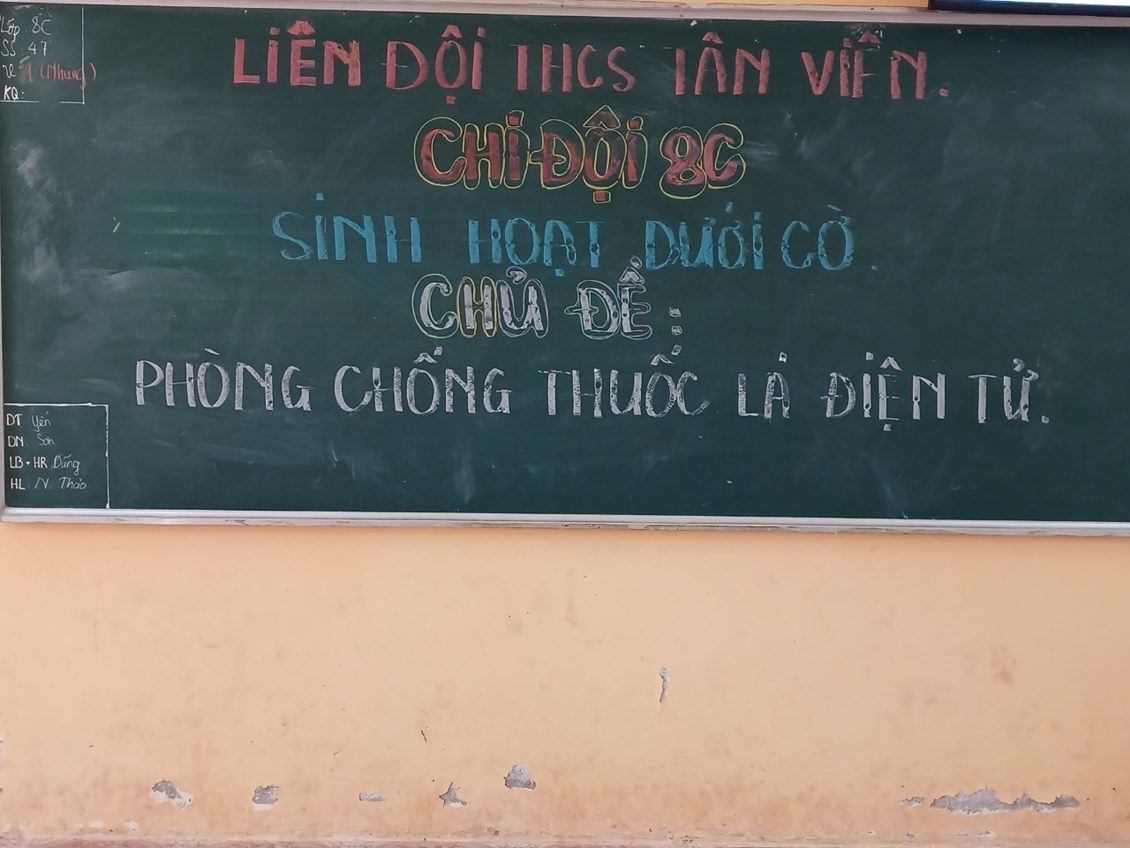 Lớp 8C
SS 47
1 (Nhung)
KQ:
LIÊN ĐỘI THCS TÂN VIÊN.
CHI ĐỘI 8C
SINH HOẠT DƯỚI CỜ.
CHỦ ĐỀ:
PHÒNG CHỐNG THUỐC LÁ ĐIỆN TỬ.
DT Yến
DN. Sơn
LB + HR Dũng
HL N. Thảo